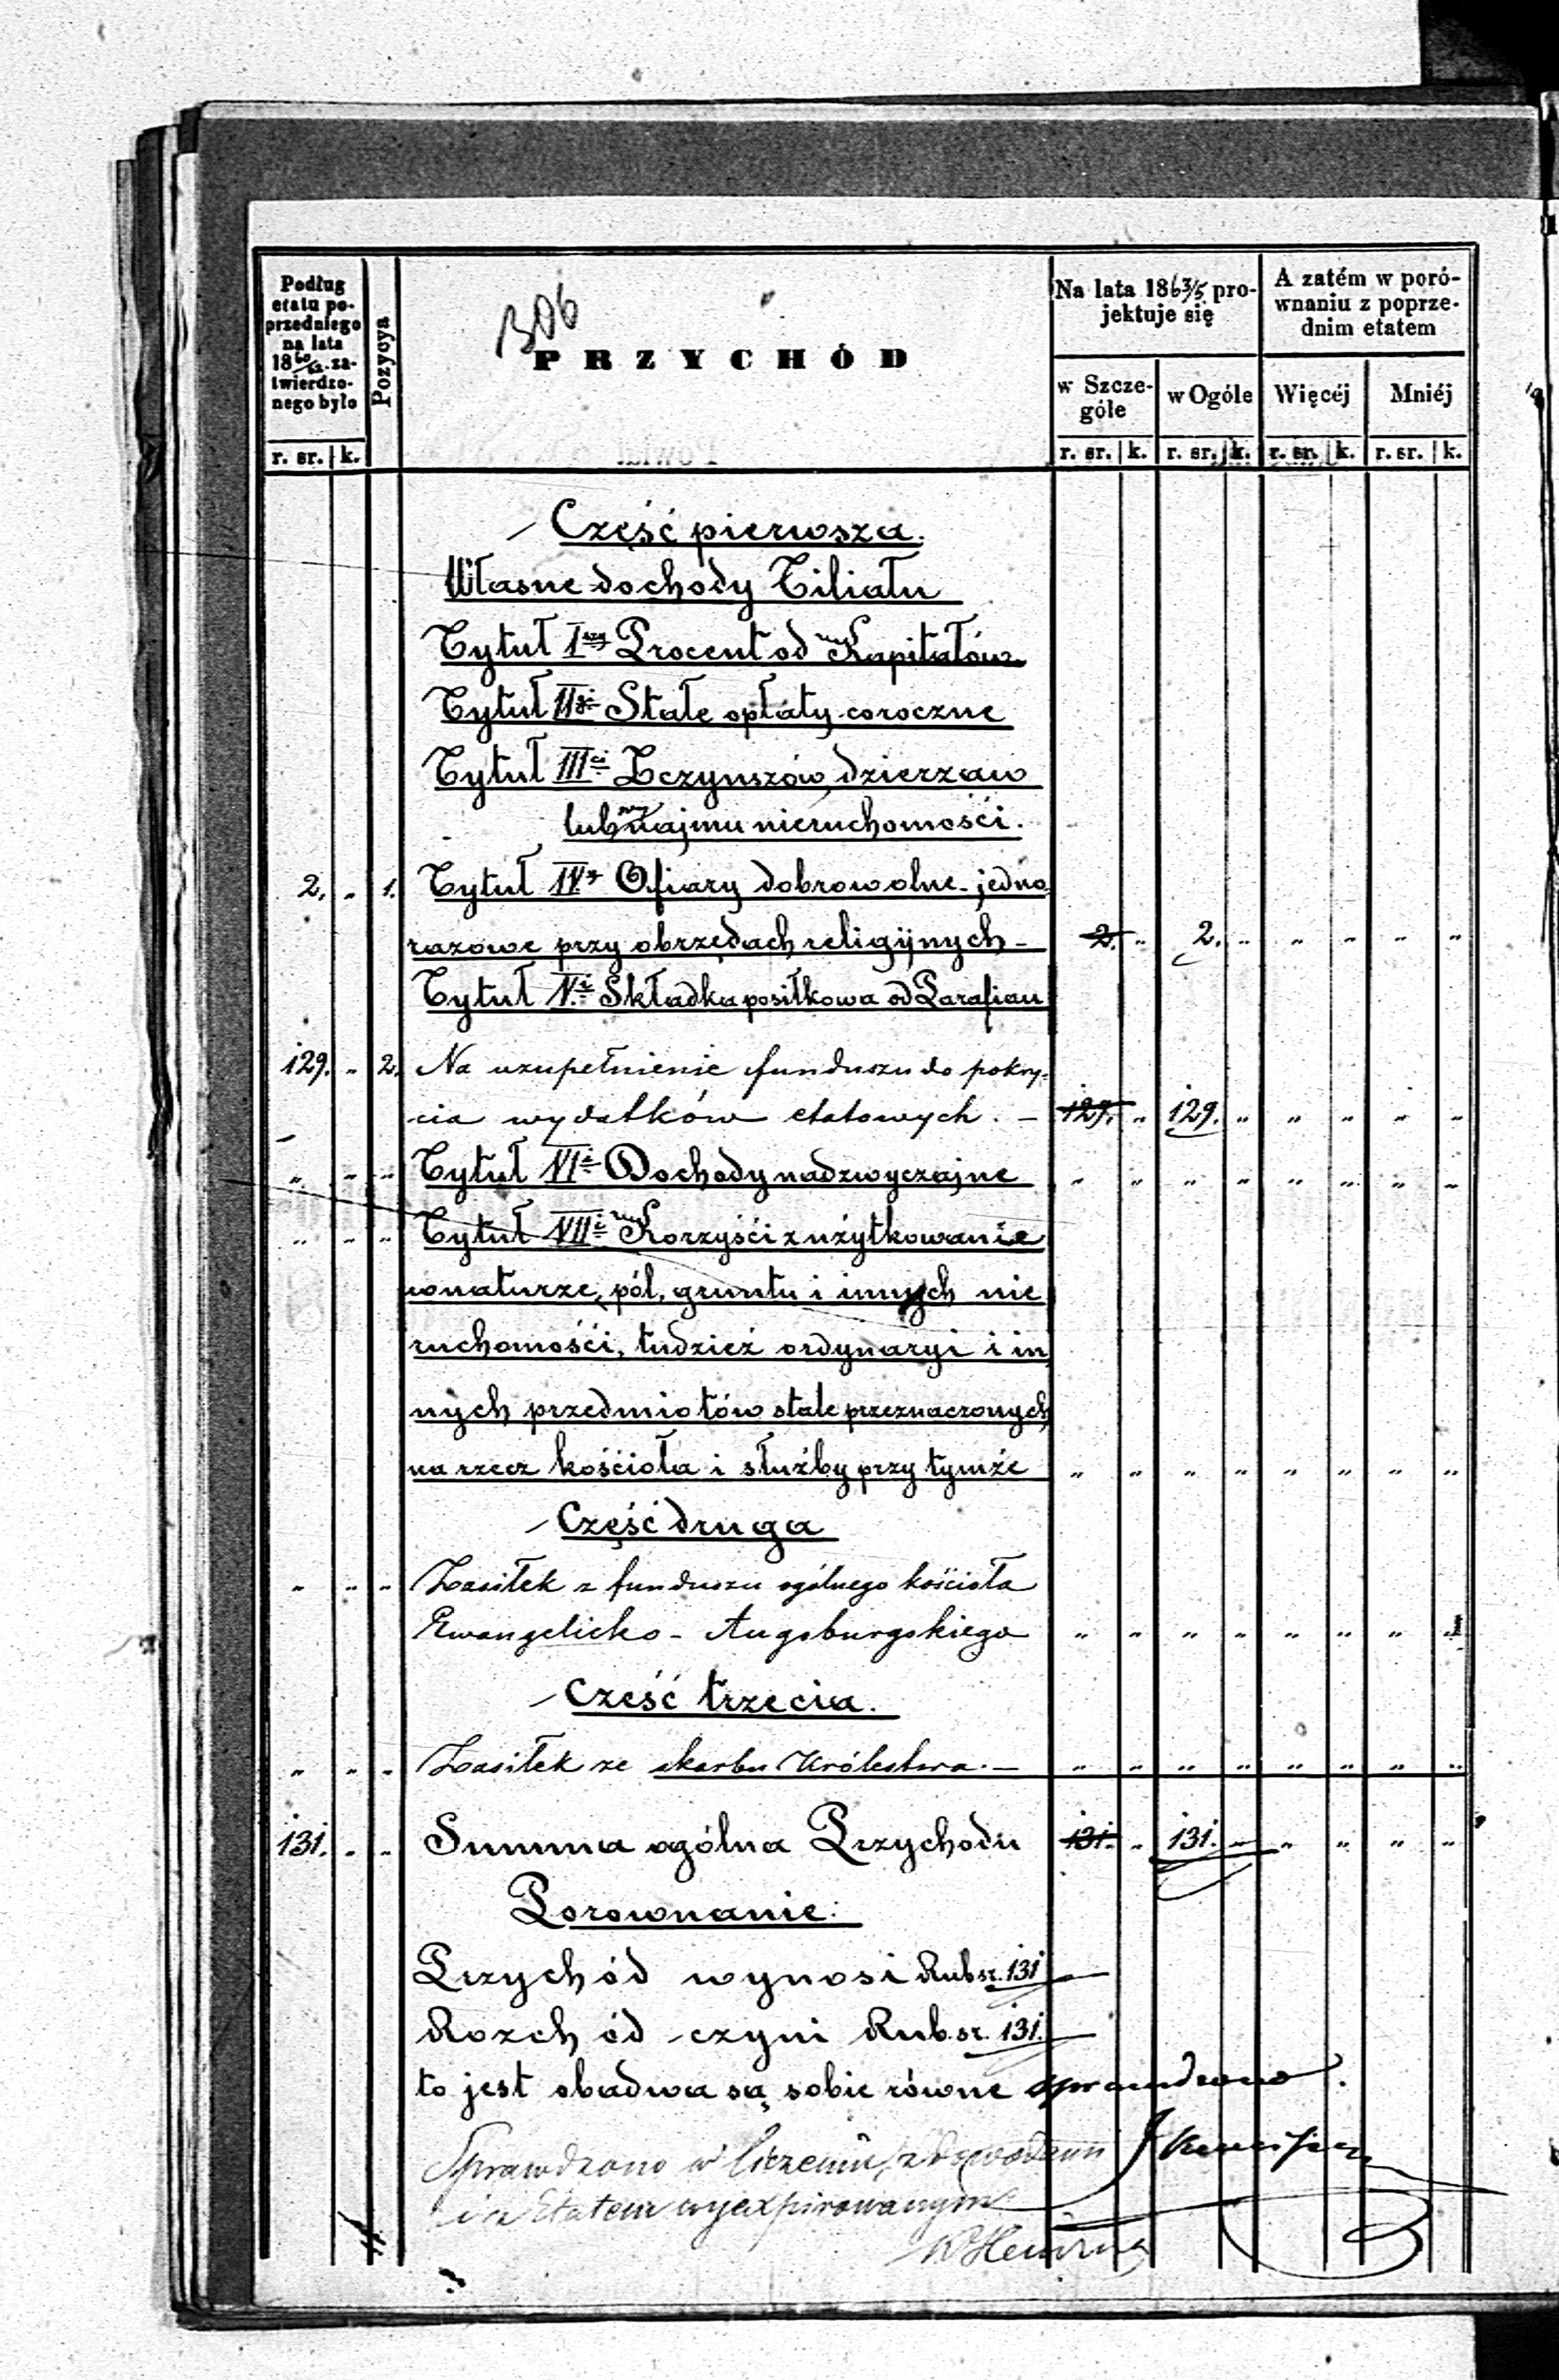 306
PRZYCHÓD
Podług
etatu po-
przedniego
na lata
18 60/62 za-
twierdzo-
nego było
Pozycya
Na lata 186 3/5 pro-
jektuje się
A zatém w poró-
wnaniu z poprze-
dnim etatem
w Szcze-
góle
w Ogóle
Więcéj
Mniéj
r. sr. k. r. sr. k. r. sr. k. r. sr. k. r. sr. k.
Część pierwsza.
Własne dochody Filiału
Tytuł I szy Procent od Kapitałów
Tytuł II gi Stałe opłaty coroczne
Tytuł III ci Z czynszów, dzierzaw
lub najmu nieruchomości.
2. " 1. Tytuł IV y Ofiary dobrowolne jedno
razowe przy obrzędach religijnych - 2. " 2. " " " " "
Tytuł V i Składka posiłkowa od Parafian
129. " 2. Na uzupełnienie funduszu do pokry-
cia wydatków etatowych. - 129. " 129. " " " " "
" " " Tytuł VI i Dochody nadzwyczajne " " " " " " " "
" " " Tytuł VII i Korzyści z użytkowanie
w naturze, pól, gruntu i innych nie
ruchomości, tudzież ordynaryi i in
nych przedmiotów stale przeznaczonych
na rzecz kościoła i służby przy tymże " " " " " " " "
Część druga
" " " Zasiłek z funduszu ogólnego kościoła
Ewangelicko - Augsburgskiego " " " " " " " "
Cześć trzecia.
" " " Zasiłek ze skarbu Królestwa. - " " " " " " " "
131. " " Summa ogólna Przychodu 131. " 131. " " " " "
Porownanie:
Przychód wynosi Rub sr. 131
Rozchód czyni Rub. sr. 131.
to jest obadwa są sobie równe sprawdzono.
Sprawdzono w liczeniu, z dowodami
i z Etatem wyexpirowanym